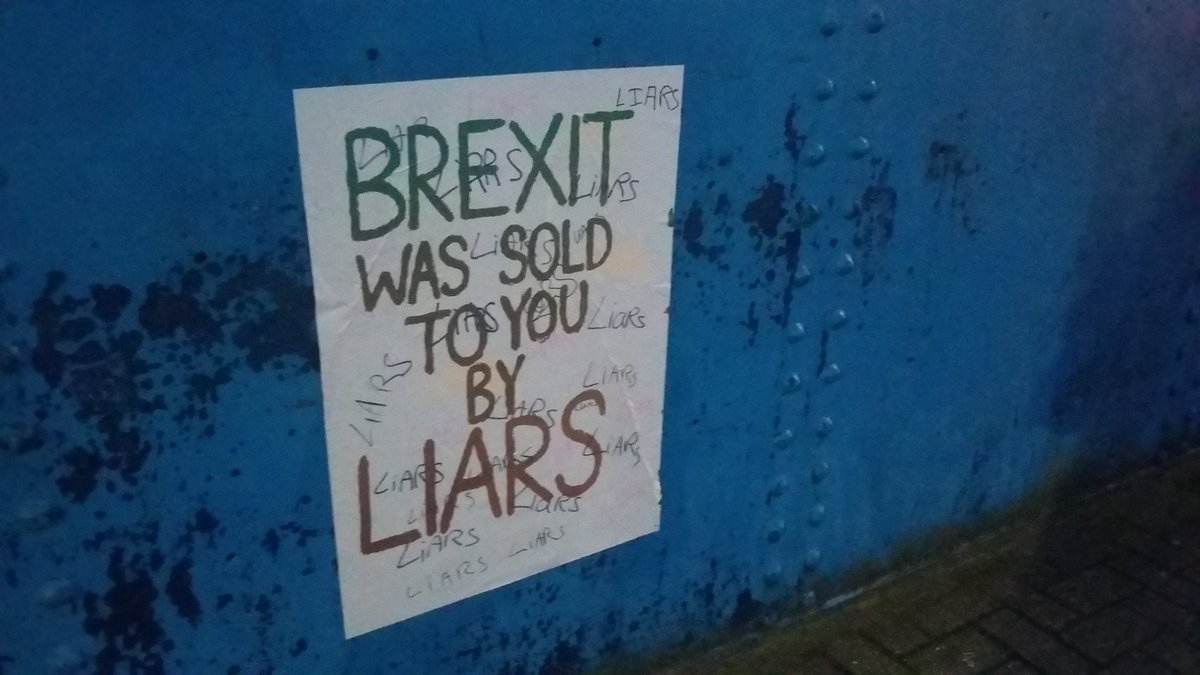 LIARS
BREXIT
LIARS
WAS SOLD
TO YOU
Liars
LIARS
LIARS
BY
LIARS
LIARS
LIARS
LiARS
Liars
LiARS
LIARS
LIARS